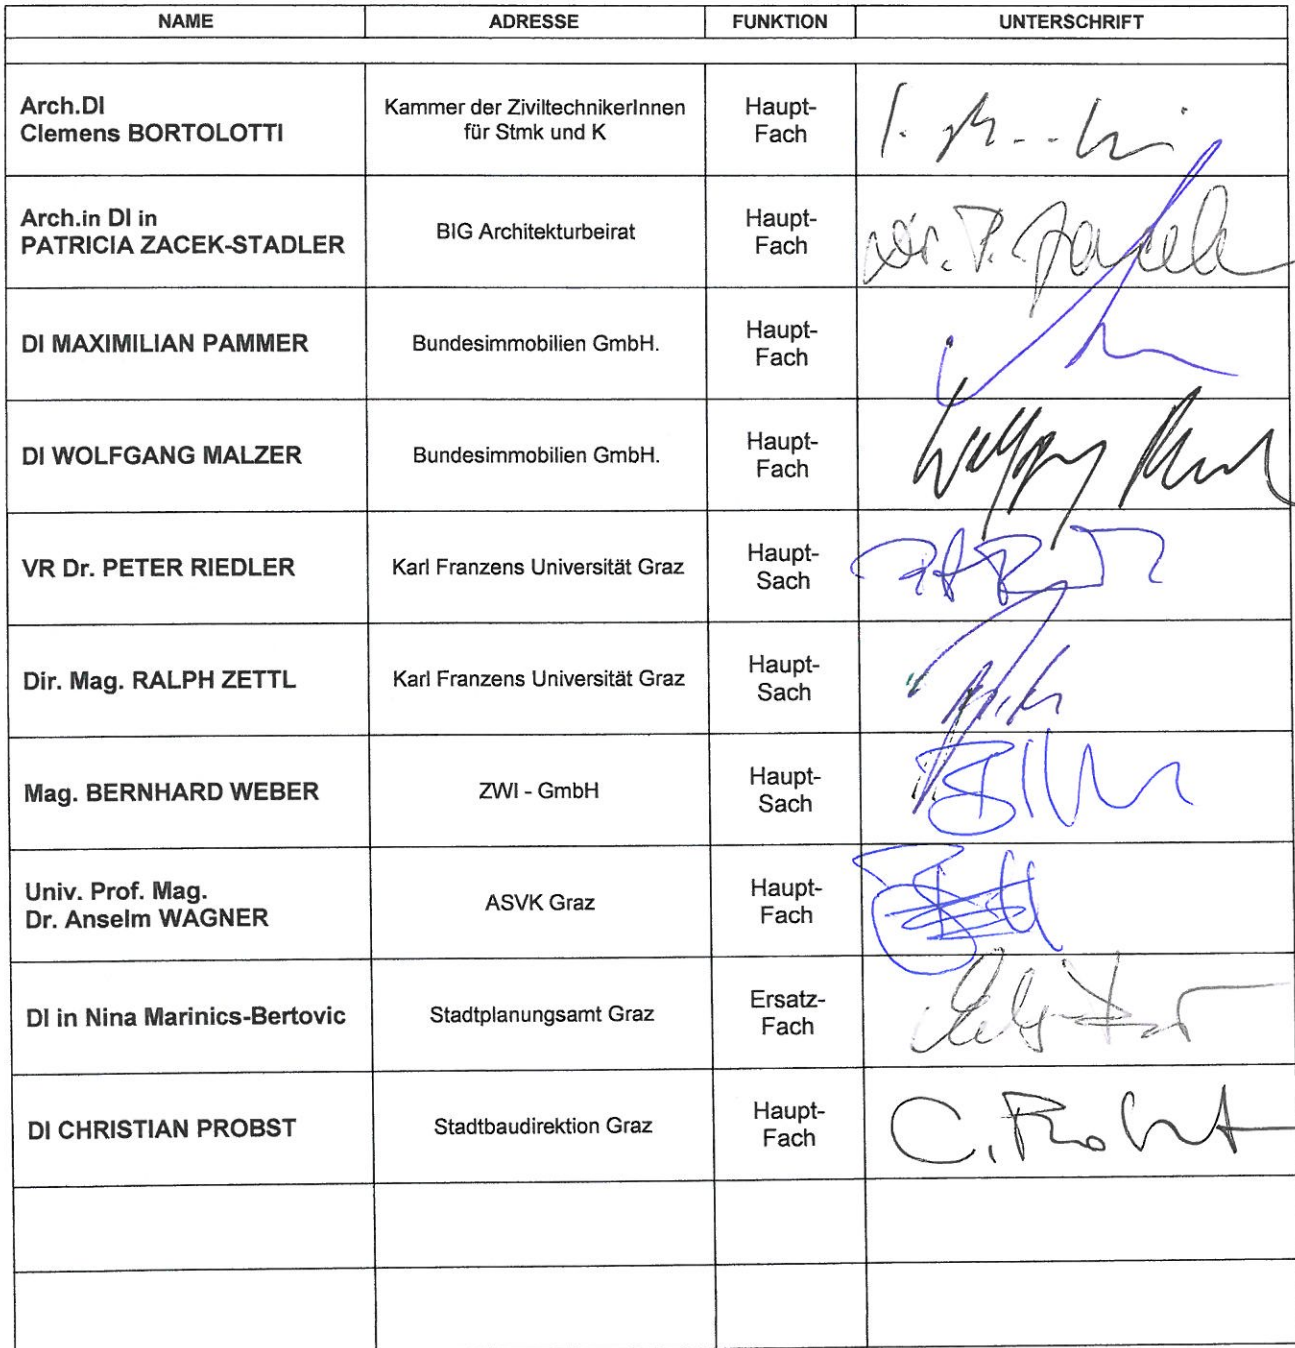 NAME ADRESSE FUNKTION UNTERSCHRIFT
Arch.DI
Clemens BORTOLOTTI
Kammer der ZiviltechnikerInnen
für Stmk und K
Haupt-
Fach
Arch.in DI in
PATRICIA ZACEK-STADLER
BIG Architekturbeirat
Haupt-
Fach
Dr. P. Zacek
DI MAXIMILIAN PAMMER
Bundesimmobilien GmbH.
Haupt-
Fach
DI WOLFGANG MALZER
Bundesimmobilien GmbH.
Haupt-
Fach
VR Dr. PETER RIEDLER
Karl Franzens Universität Graz
Haupt-
Sach
Dir. Mag. RALPH ZETTL
Karl Franzens Universität Graz
Haupt-
Sach
Mag. BERNHARD WEBER
ZWI - GmbH
Haupt-
Sach
Univ. Prof. Mag.
Dr. Anselm WAGNER
ASVK Graz
Haupt-
Fach
DI in Nina Marinics-Bertovic
Stadtplanungsamt Graz
Ersatz-
Fach
DI CHRISTIAN PROBST
Stadtbaudirektion Graz
Haupt-
Fach
C. Probst